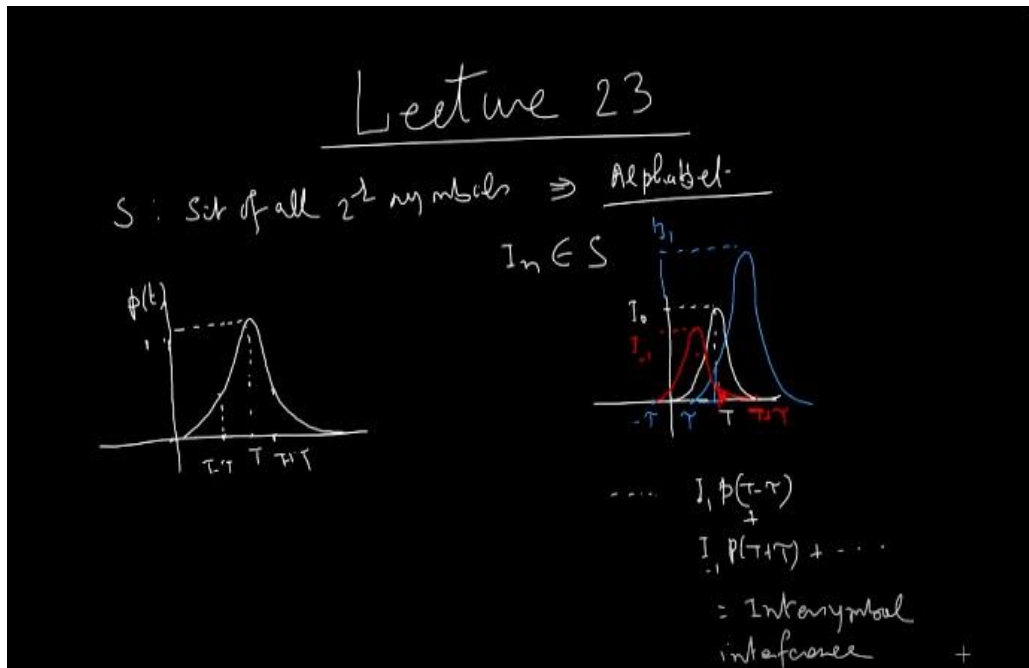 Lecture 23
S : Set of all 2^λ symbols ⇒ Alphabet.
I_n ∈ S
p(t)
T-τ T T+τ
b_1
I_0
I_-1
-τ τ T T+τ
---- I_1 p(T-τ)
+
I_-1 p(T+τ) + ----
= Intersymbol
interference +